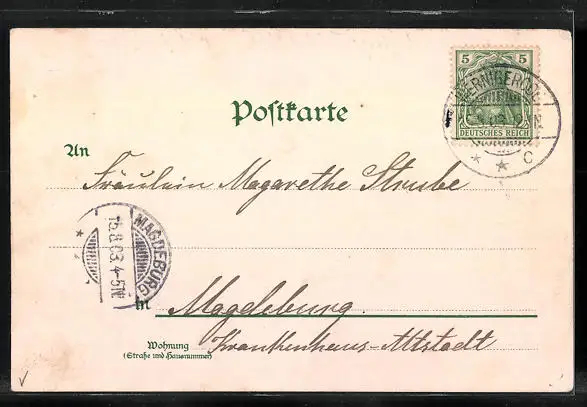 5 5
DEUTSCHES REICH
WERNIGERODE
C
Postkarte
An
Fräulein Magarethe Strube
MAGDEBURG
15.8.03. 4-5 N
in Magdeburg.
Krankenhaus-Altstadt
Wohnung
(Straße und Hausnummer)